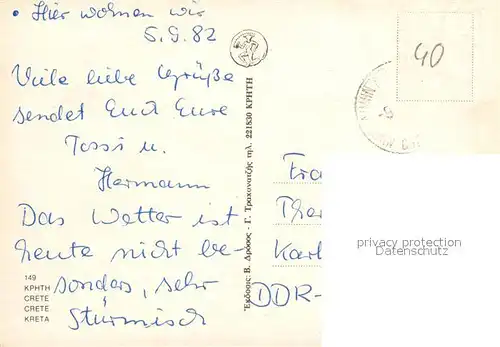 • Hier wohnen wir
5.9.82
Viele liebe Grüße
sendet Euch Eure
Tossi u.
Hermann
Das Wetter ist
heute nicht be-
sonders, sehr
stürmisch
149
ΚΡΗΤΗ
CRETE
CRETE
KRETA
Ἔκδοσις: Β. Δρόσος - Γ. Τραχανατζῆς τηλ. 221830 ΚΡΗΤΗ
40
Fra
Ther
Karl
DDR-
privacy protection
Datenschutz